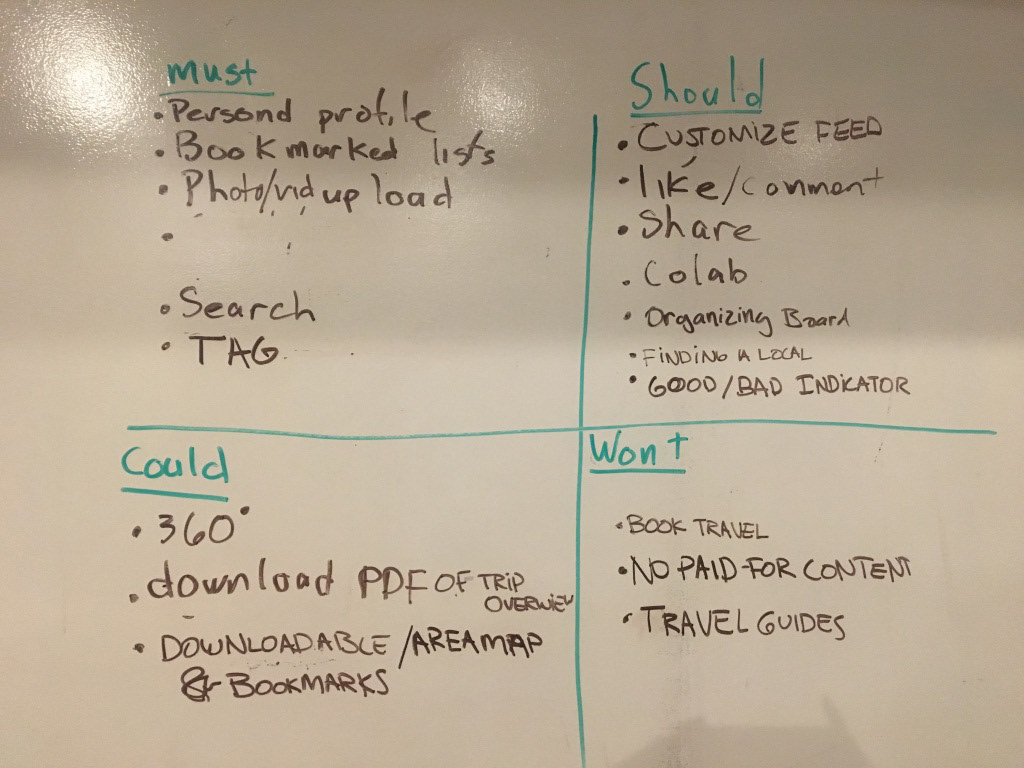 must
• Personal profile
• Bookmarked lists
• Photo/vid upload
•
• Search
• TAG
Should
• CUSTOMIZE FEED
• like/comment
• Share
• Colab
• Organizing Board
• FINDING A LOCAL
• GOOD/BAD INDICATOR
Could
• 360°
• download PDF OF TRIP
OVERVIEW
• DOWNLOADABLE/AREA MAP
& BOOKMARKS
Wont
• BOOK TRAVEL
• NO PAID-FOR CONTENT
• TRAVEL GUIDES